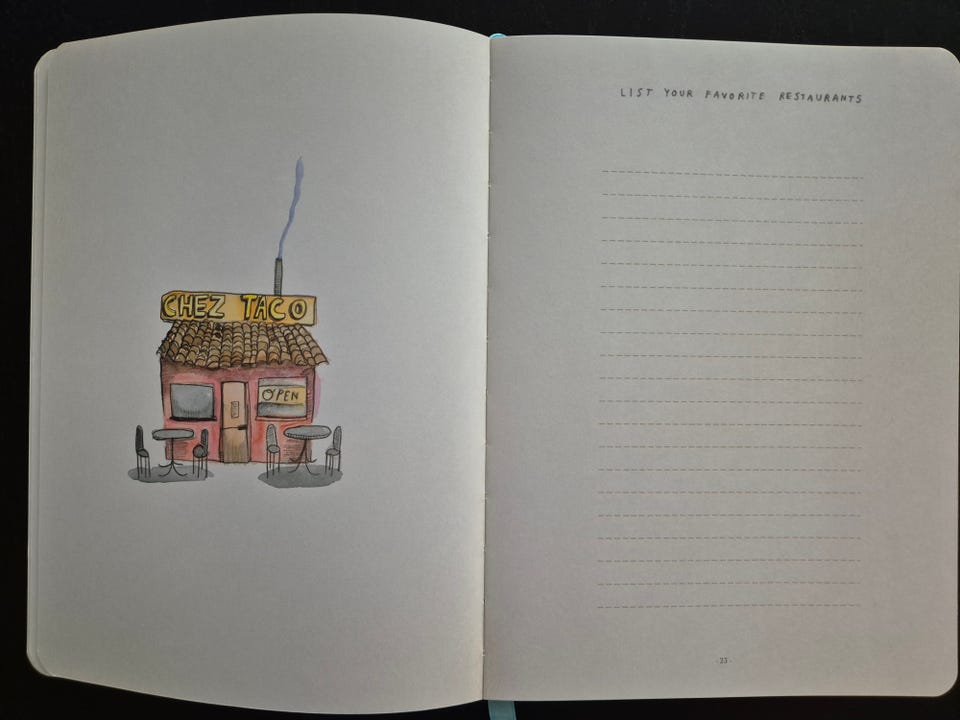 CHEZ TACO
OPEN
LIST YOUR FAVORITE RESTAURANTS
· 23 ·